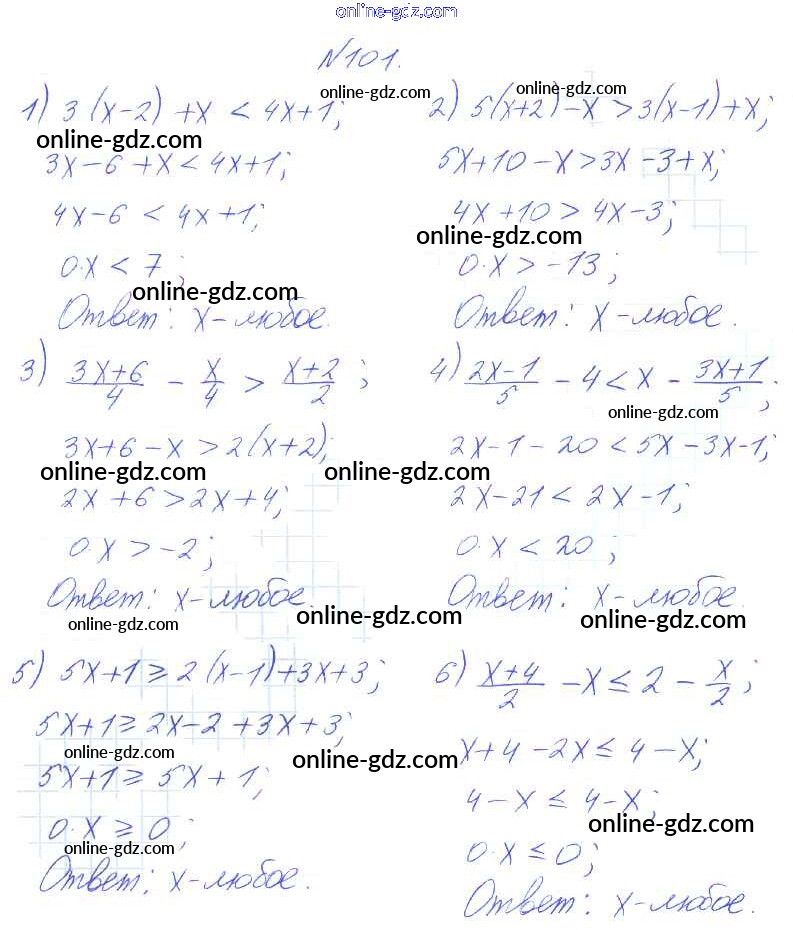 online-gdz.com
№101.
1) 3(x-2)+x < 4x+1;
online-gdz.com
online-gdz.com
3x-6+x < 4x+1;
4x-6 < 4x+1;
0·x < 7;
online-gdz.com
Ответ: x-любое.
2) 5(x+2)-x > 3(x-1)+x;
online-gdz.com
5x+10-x > 3x-3+x;
4x+10 > 4x-3;
online-gdz.com
0·x > -13;
Ответ: x-любое.
3) (3x+6)/4 - x/4 > (x+2)/2;
3x+6-x > 2(x+2);
online-gdz.com
2x+6 > 2x+4;
0·x > -2;
Ответ: x-любое.
online-gdz.com
4) (2x-1)/5 - 4 < x - (3x+1)/5;
online-gdz.com
2x-1-20 < 5x-3x-1;
online-gdz.com
2x-21 < 2x-1;
0·x < 20;
Ответ: x-любое.
online-gdz.com
online-gdz.com
5) 5x+1 ≥ 2(x-1)+3x+3;
5x+1 ≥ 2x-2+3x+3;
online-gdz.com
5x+1 ≥ 5x+1;
0·x ≥ 0;
online-gdz.com
Ответ: x-любое.
6) (x+4)/2 - x ≤ 2 - x/2;
x+4-2x ≤ 4-x;
online-gdz.com
4-x ≤ 4-x;
online-gdz.com
0·x ≤ 0;
Ответ: x-любое.